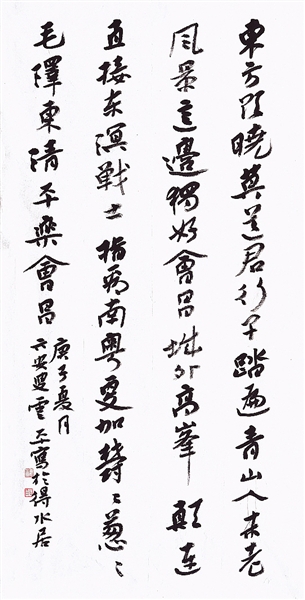 東方欲曉莫道君行早踏遍青山人未老
風景這邊獨好會昌城外高峯顛連
直接东溟戰士指看南粵更加鬱〻葱〻
毛澤東清平樂會昌
庚子夏月
六安雲寫於得水居